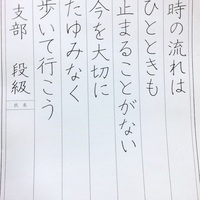 時の流れは
ひとときも
止まることがない
今を大切に
たゆみなく
歩いて行こう
支部 段級
氏名